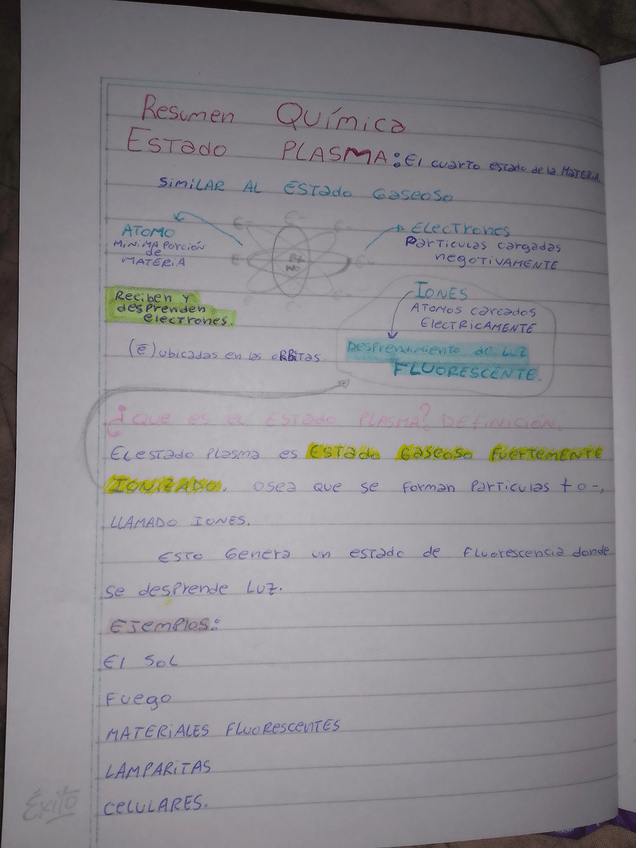 Resumen Química
Estado PLASMA: El cuarto estado de la Materia
Similar AL Estado Gaseoso
ATOMO
Minima Porción
de
MATERiA
Electrones
Particulas cargadas
negotivamente
Reciben y
desprenden
electrones.
(ē) ubicadas en las orbitas
Iones
Atomos carcados
Electricamente
Desprendimiento de Luz
Fluorescente.
¿Que es el Estado Plasma? Definición.
El estado Plasma es Estado Gaseoso Fuertemente
Ionizado. osea que se forman Particulas + o -,
LLamado iones.
Esto Genera un estado de fluorescencia donde
se desprende Luz.
Ejemplos:
El Sol
Fuego
Materiales Fluorescentes
Lamparitas
Celulares.
Éxito